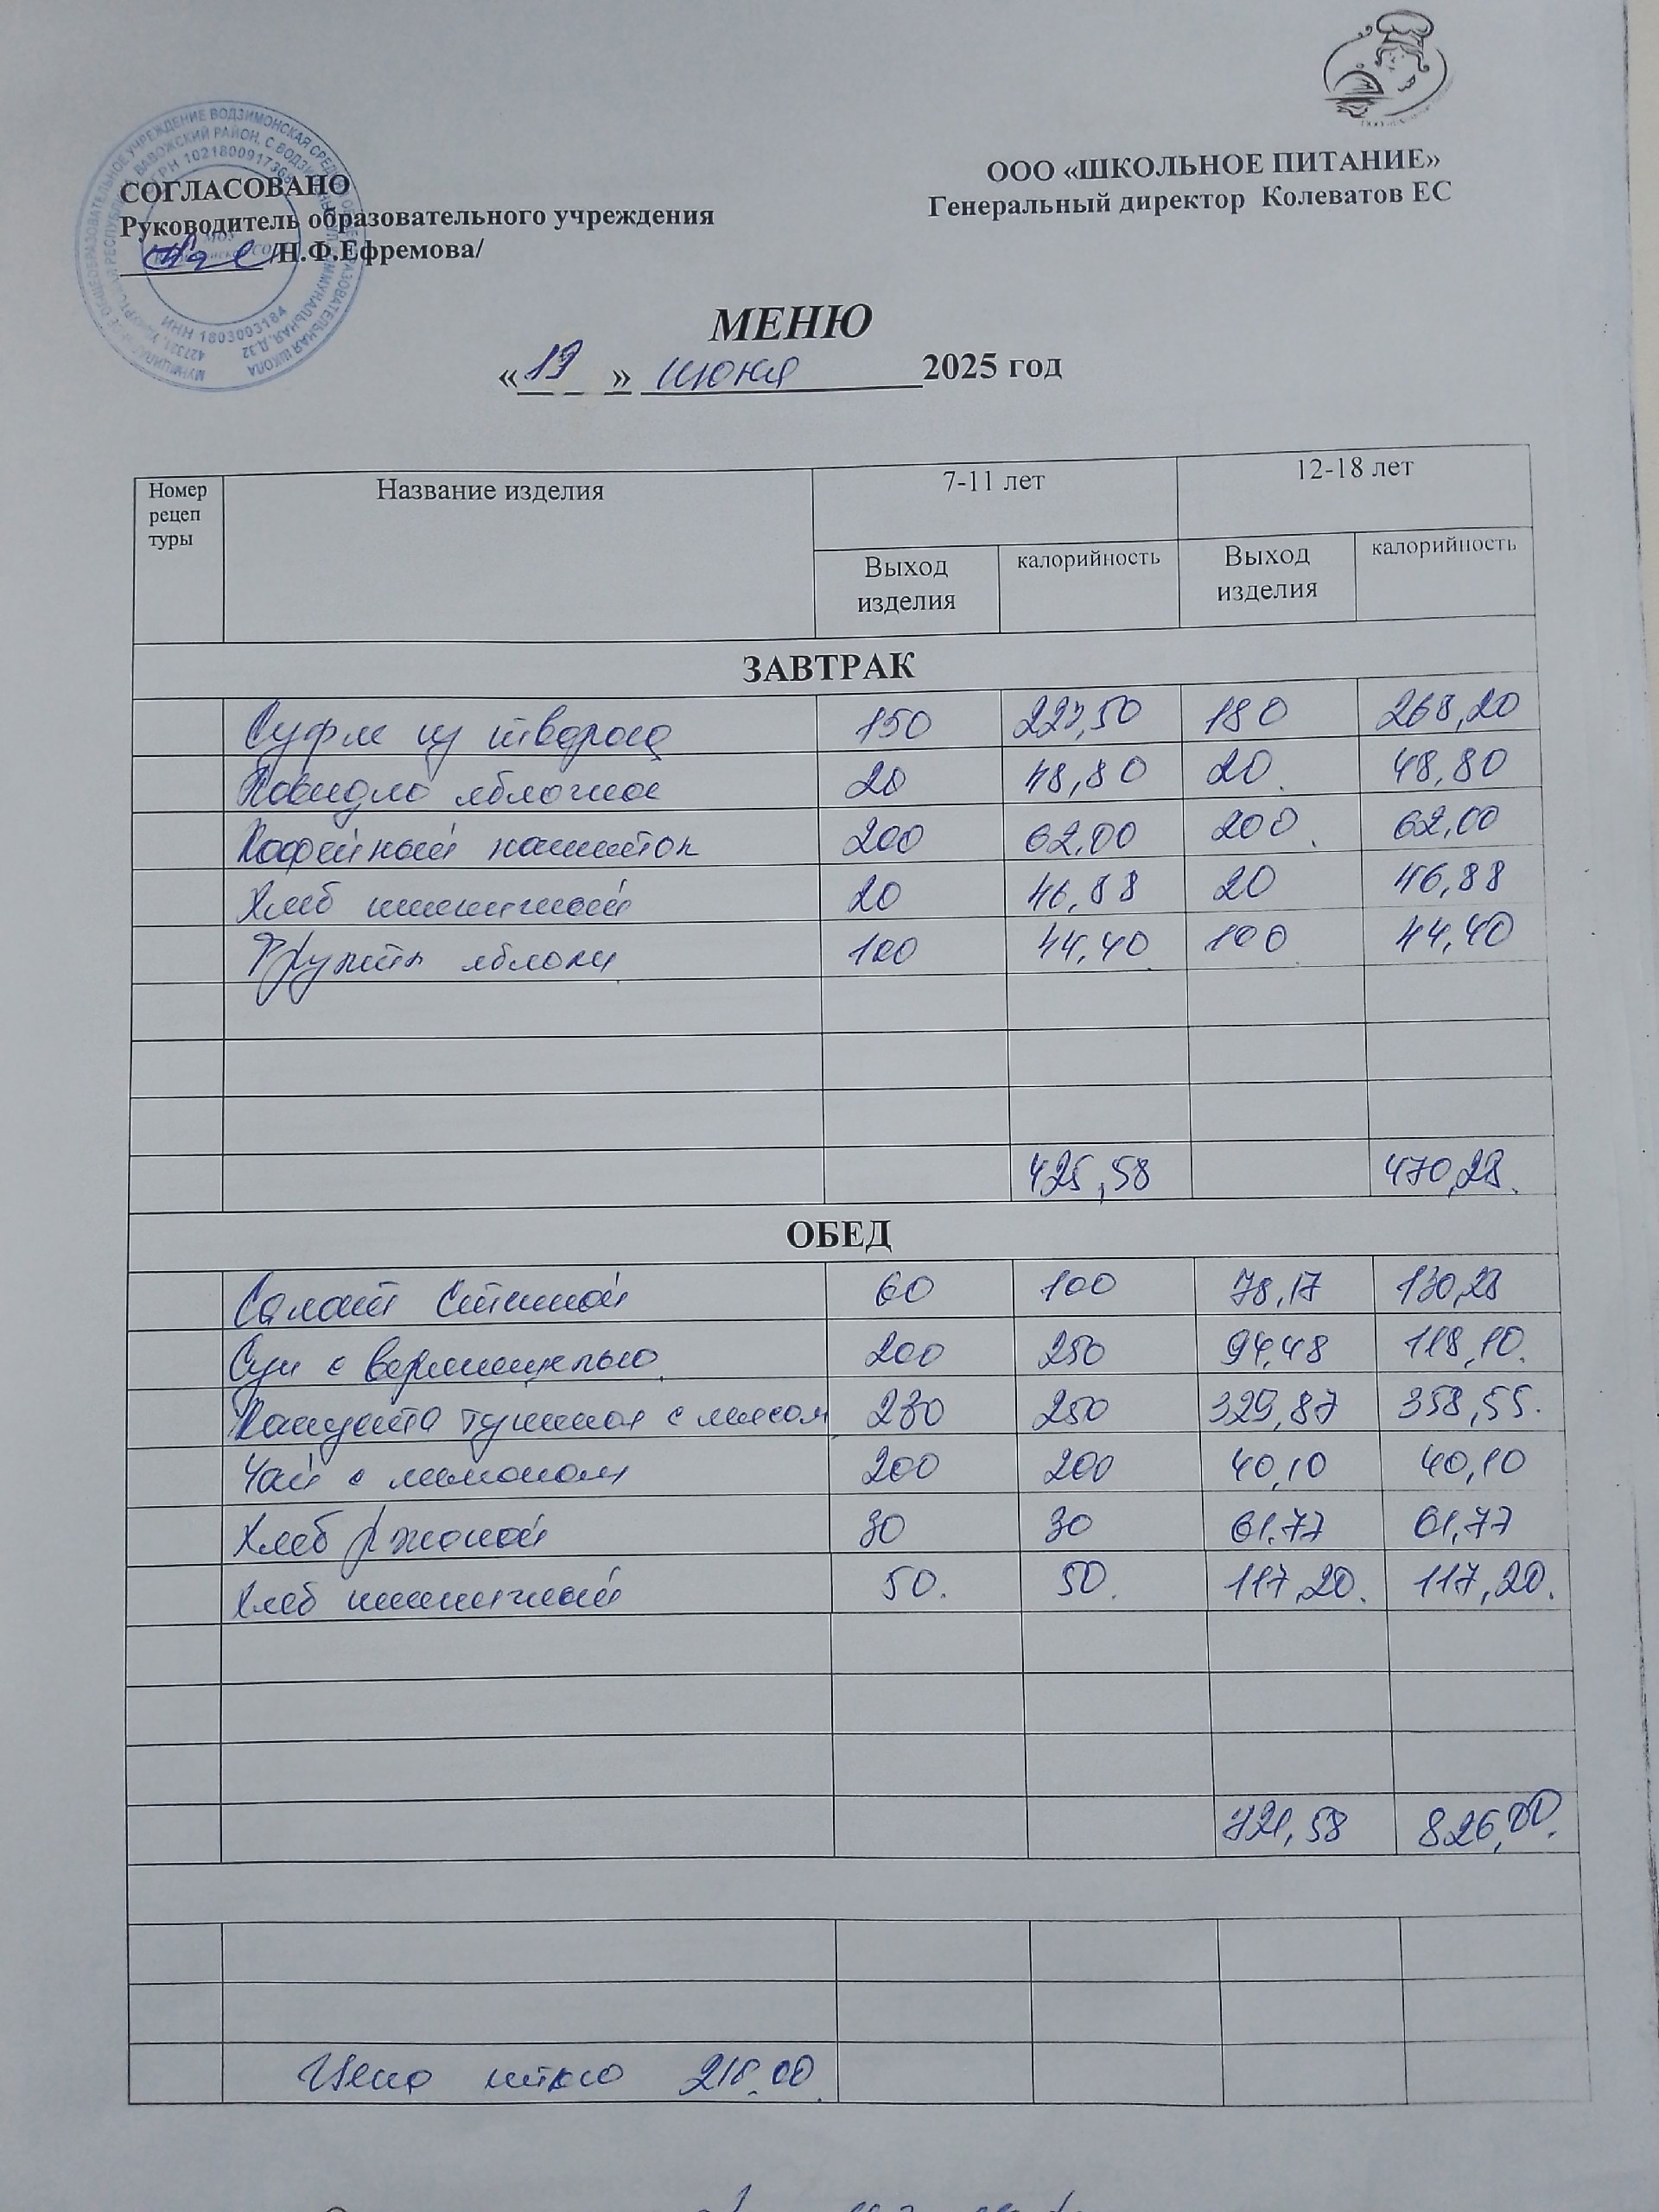 ООО «ШКОЛЬНОЕ ПИТАНИЕ»
Генеральный директор Колеватов ЕС
СОГЛАСОВАНО
Руководитель образовательного учреждения
/Н.Ф.Ефремова/
ИНН 1803003184
МЕНЮ
«19» июня 2025 год
Номер рецеп туры Название изделия 7-11 лет 12-18 лет
Выход изделия калорийность Выход изделия калорийность
ЗАВТРАК
Суфле из творога 150 223,50 180 268,20
Повидло яблочное 20 48,80 20 48,80
Кофейный напиток 200 62,00 200 62,00
Хлеб пшеничный 20 46,88 20 46,88
Фрукты яблоки 100 44,40 100 44,40
425,58 470,28
ОБЕД
Салат Степной 60 100 78,17 130,28
Суп с вермишелью 200 250 94,48 118,10
Капуста тушеная с мясом 230 250 329,87 358,55
Чай с лимоном 200 200 40,10 40,10
Хлеб ржаной 30 30 61,77 61,77
Хлеб пшеничный 50 50 117,20 117,20
721,58 826,00
Цена меню 218.00